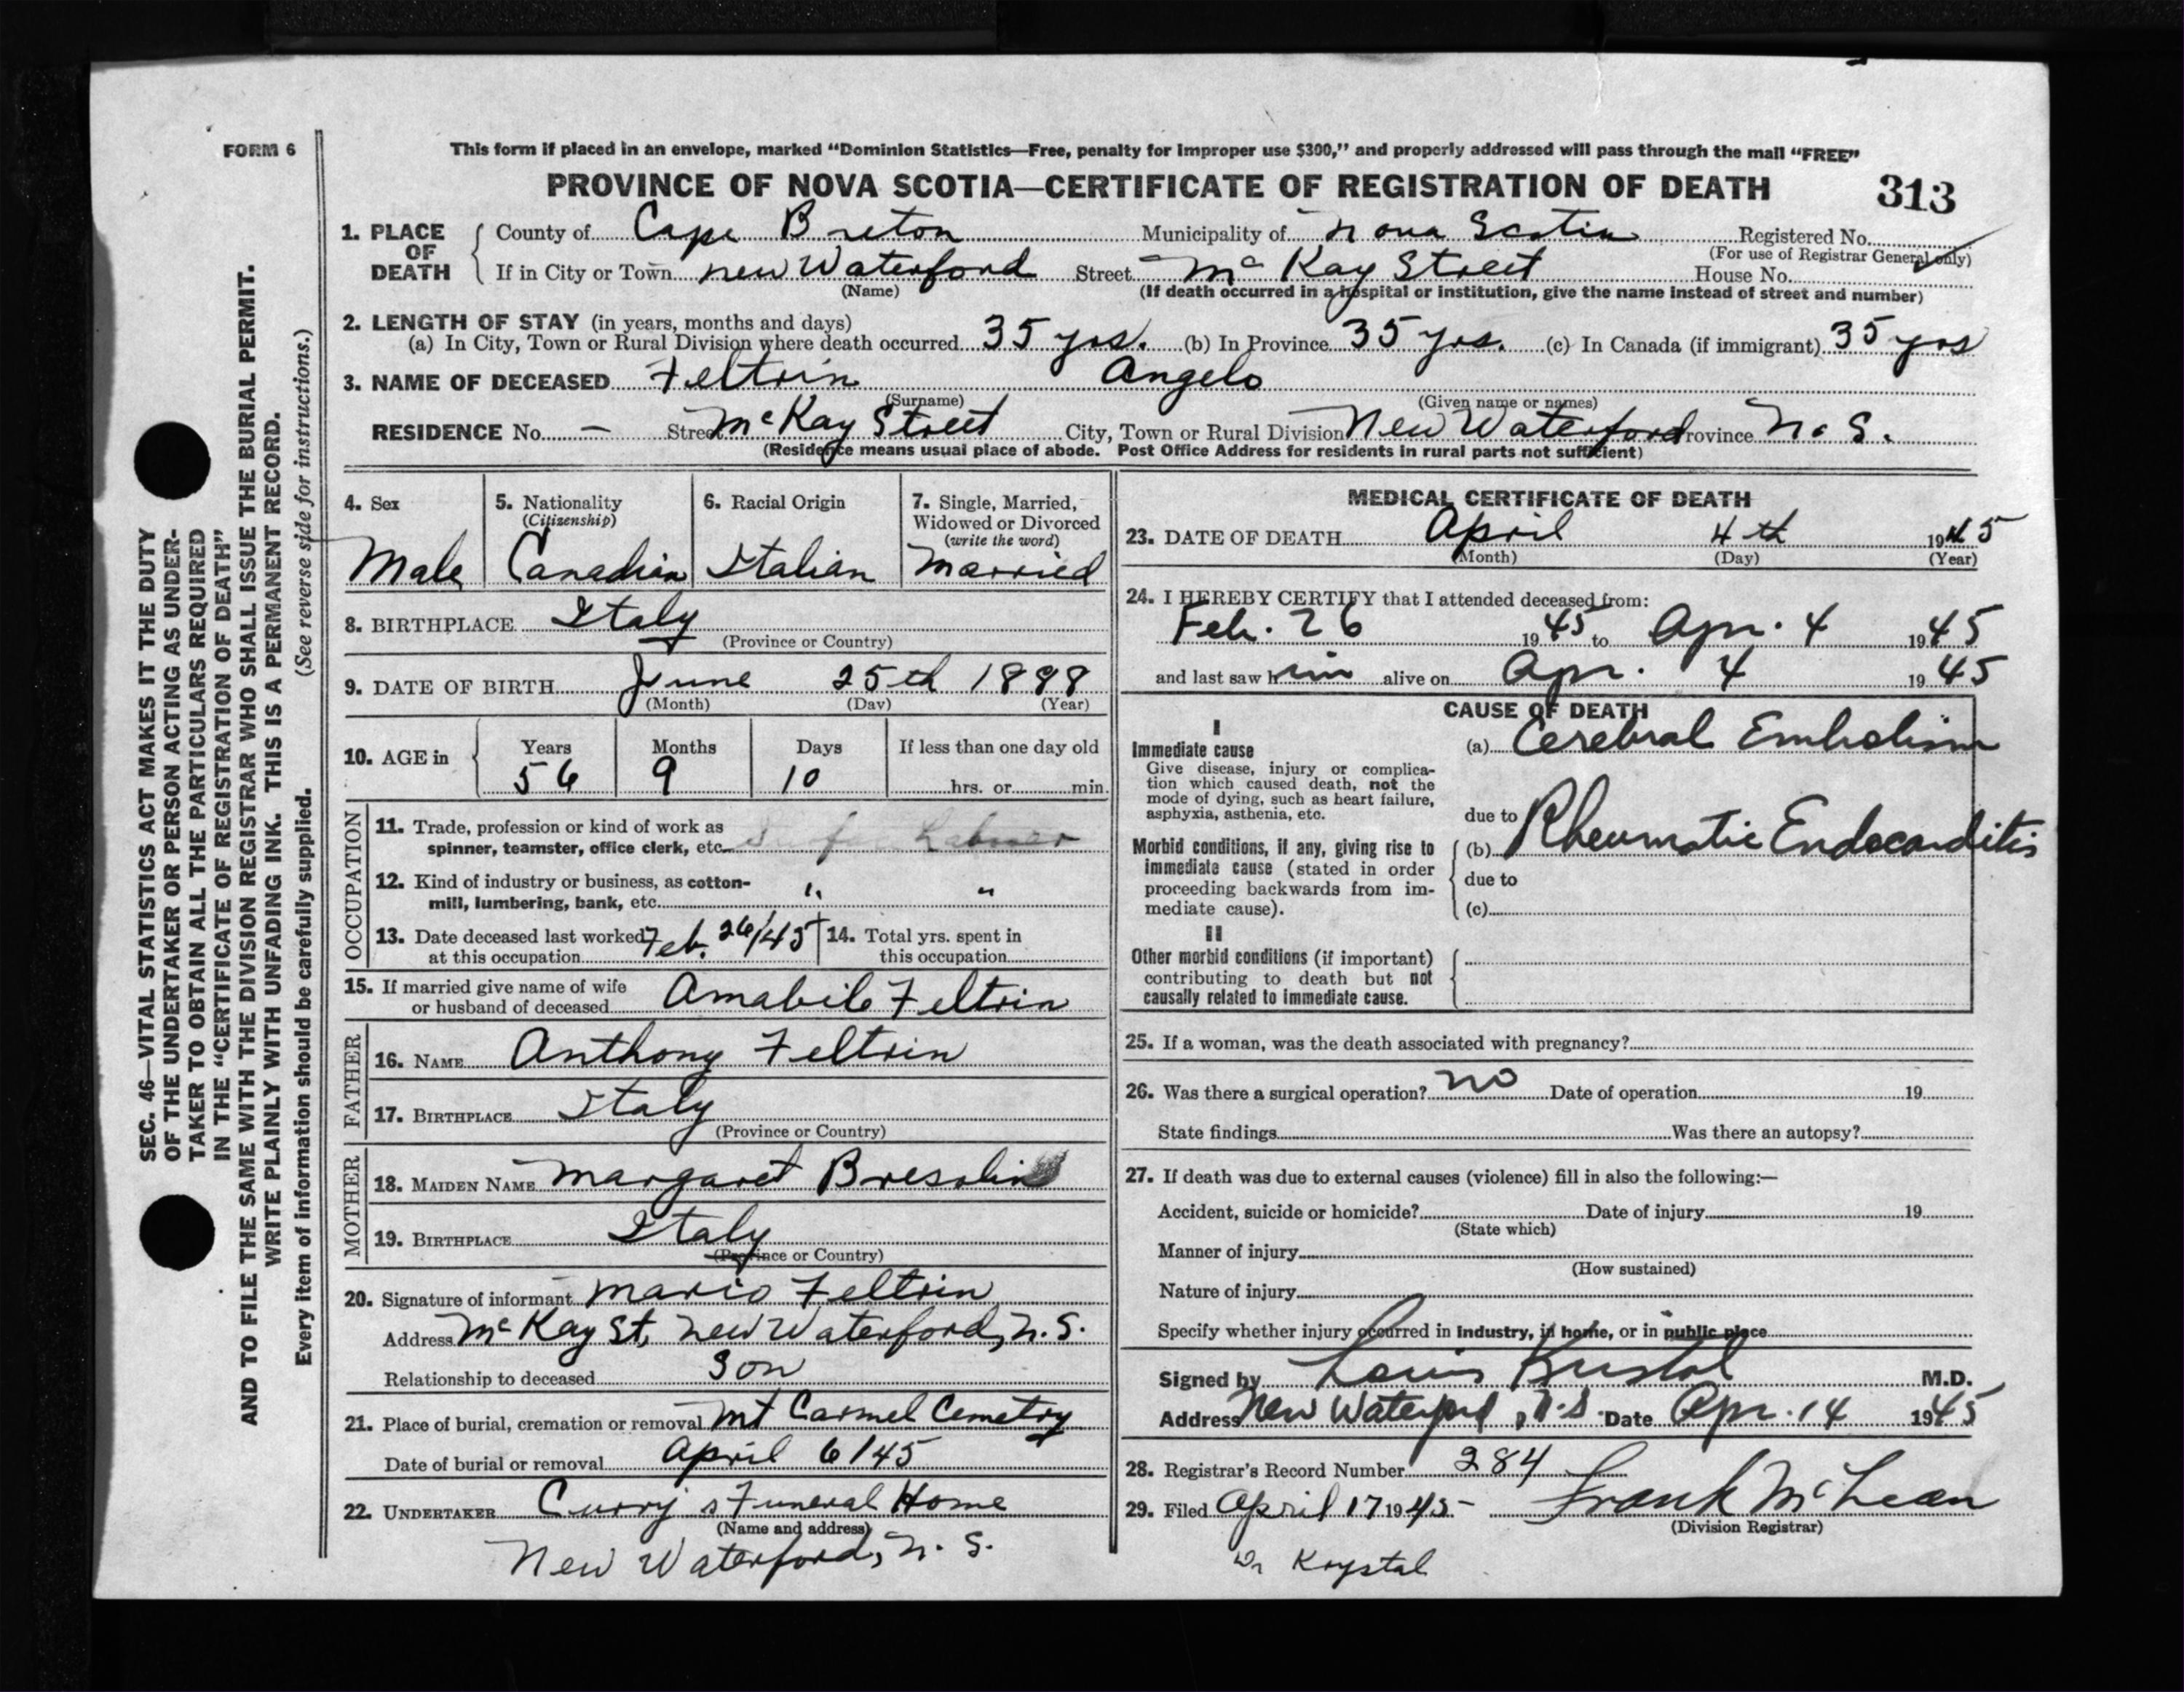 FORM 6
This form if placed in an envelope, marked “Dominion Statistics—Free, penalty for improper use $300,” and properly addressed will pass through the mail “FREE”
PROVINCE OF NOVA SCOTIA—CERTIFICATE OF REGISTRATION OF DEATH 313
1. PLACE OF DEATH County of Cape Breton Municipality of Nova Scotia Registered No.
(For use of Registrar General only)
If in City or Town New Waterford Street Mc Kay Street House No.
(Name) (If death occurred in a hospital or institution, give the name instead of street and number)
2. LENGTH OF STAY (in years, months and days)
(a) In City, Town or Rural Division where death occurred 35 yrs. (b) In Province 35 yrs. (c) In Canada (if immigrant) 35 yrs
3. NAME OF DECEASED Feltrin Angelo
(Surname) (Given name or names)
RESIDENCE No. — Street McKay Street City, Town or Rural Division New Waterford Province N. S.
(Residence means usual place of abode. Post Office Address for residents in rural parts not sufficient)
4. Sex
Male
5. Nationality
(Citizenship)
Canadian
6. Racial Origin
Italian
7. Single, Married,
Widowed or Divorced
(write the word)
Married
8. BIRTHPLACE Italy
(Province or Country)
9. DATE OF BIRTH June 25th 1888
(Month) (Day) (Year)
10. AGE in Years Months Days If less than one day old
56 9 10 hrs. or min.
OCCUPATION
11. Trade, profession or kind of work as
spinner, teamster, office clerk, etc. Labourer
12. Kind of industry or business, as cotton-
mill, lumbering, bank, etc. " "
13. Date deceased last worked Feb. 26/45 14. Total yrs. spent in
at this occupation this occupation
15. If married give name of wife
or husband of deceased Amabile Feltrin
FATHER
16. NAME Anthony Feltrin
17. BIRTHPLACE Italy
(Province or Country)
MOTHER
18. MAIDEN NAME Margaret Bresolin
19. BIRTHPLACE Italy
(Province or Country)
20. Signature of informant Mario Feltrin
Address McKay St, New Waterford, N.S.
Relationship to deceased Son
21. Place of burial, cremation or removal Mt Carmel Cemetry
Date of burial or removal April 6/45
22. UNDERTAKER Curry's Funeral Home
(Name and address)
New Waterford, N. S.
MEDICAL CERTIFICATE OF DEATH
23. DATE OF DEATH April 4th 1945
(Month) (Day) (Year)
24. I HEREBY CERTIFY that I attended deceased from:
Feb. 26 1945 to Apr. 4 1945
and last saw him alive on Apr. 4 1945
CAUSE OF DEATH
I
Immediate cause (a) Cerebral Embolism
Give disease, injury or complica-
tion which caused death, not the
mode of dying, such as heart failure,
asphyxia, asthenia, etc. due to
Morbid conditions, if any, giving rise to (b) Rheumatic Endocarditis
immediate cause (stated in order due to
proceeding backwards from im-
mediate cause). (c)
II
Other morbid conditions (if important)
contributing to death but not
causally related to immediate cause.
25. If a woman, was the death associated with pregnancy?
26. Was there a surgical operation? no Date of operation 19
State findings Was there an autopsy?
27. If death was due to external causes (violence) fill in also the following:—
Accident, suicide or homicide? Date of injury 19
(State which)
Manner of injury
(How sustained)
Nature of injury
Specify whether injury occurred in industry, in home, or in public place
Signed by Louis Kristal M.D.
Address New Waterford, N.S. Date Apr. 14 1945
28. Registrar's Record Number 284
29. Filed April 17 1945- Frank McLean
(Division Registrar)
Dr Krystal
SEC. 46—VITAL STATISTICS ACT MAKES IT THE DUTY
OF THE UNDERTAKER OR PERSON ACTING AS UNDER-
TAKER TO OBTAIN ALL THE PARTICULARS REQUIRED
IN THE “CERTIFICATE OF REGISTRATION OF DEATH”
AND TO FILE THE SAME WITH THE DIVISION REGISTRAR WHO SHALL ISSUE THE BURIAL PERMIT.
WRITE PLAINLY WITH UNFADING INK. THIS IS A PERMANENT RECORD.
Every item of information should be carefully supplied. (See reverse side for instructions.)